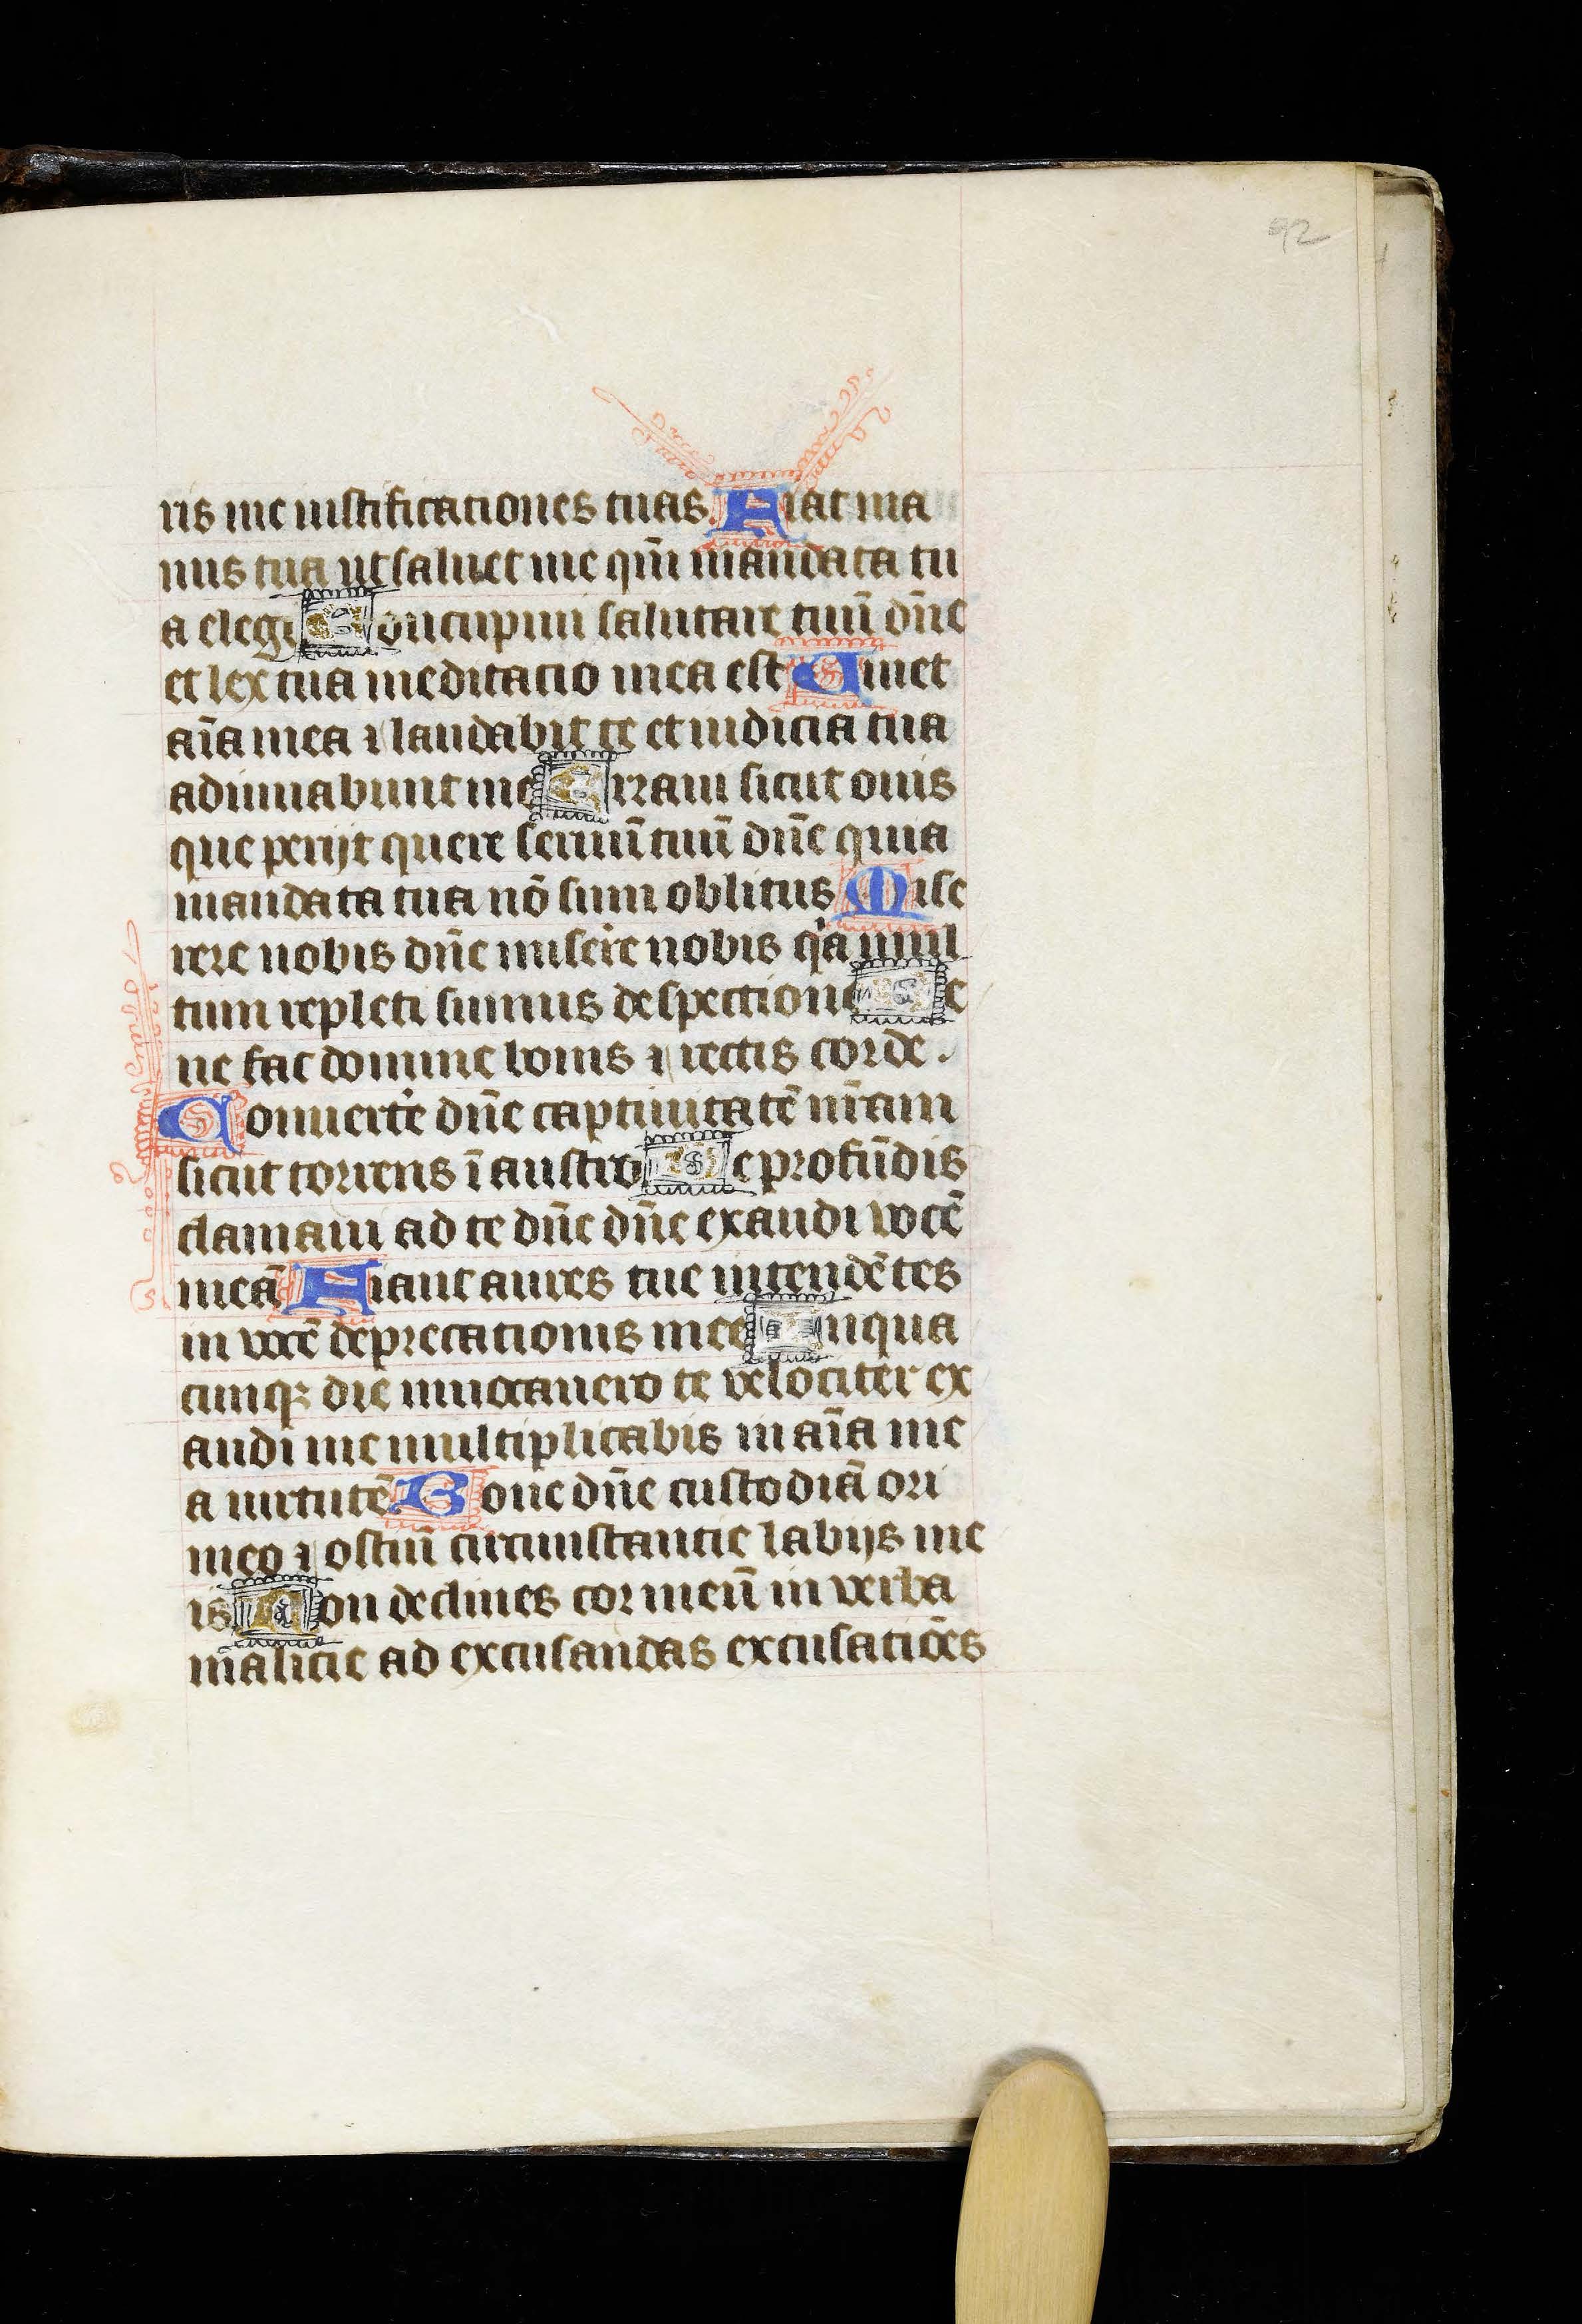 92
ris me iustificationes tuas. Fiat ma
nus tua ut saluet me qm̄ mandata tu
a elegi Concupiui salutare tuū dn̄e
et lex tua meditacio mea est Uiuet
aīa mea ⁊ laudabit te et iudicia tua
adiuuabunt me Erraui sicut ouis
que perijt quere seruū tuū dn̄e quia
mandata tua nō sum oblitus Mise
rere nobis dn̄e miserere nobis qia mul
tum repleti sumus despectione Be
ne fac domine bonis ⁊ rectis corde.
Conuerte dn̄e captiuitatē nr̄am
sicut torrens ī austro De profūdis
clamaui ad te dn̄e dn̄e exaudi vocē
meā Fiant aures tue intendētes
in vocē deprecationis mee In qua
cunqꝫ die inuocauero te velociter ex
audi me multiplicabis in aīa me
a uirtutē Pone dn̄e custodiā ori
meo ⁊ ostiū circumstantie labijs me
is Non declines cor meū in verba
malicie ad excusandas excusatiōes